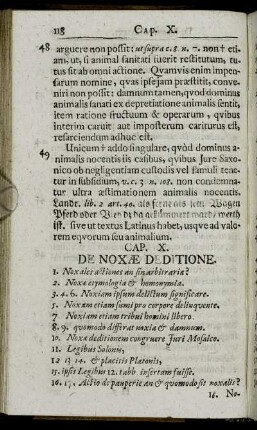 118 CAP. X.
48 arguere non possit: ut supra c. 8. n. 7. non † eti-
am, ut, si animal sanitati fuerit restitutum, tu-
tus sit ab omni actione. Qvamvis enim impen-
sarum nomine, qvas ipsejam præstitit, conve-
niri non possit: damnum tamen, qvod dominus
animalis sanati ex depretiatione animalis sentit,
item ratione fructuum & operarum, qvibus
interim caruit, aut imposterum cariturus est,
resarciendum adhuc est.
49 Unicum † addo singulare, qvòd dominus a-
nimalis nocentis iis casibus, qvibus Jure Saxo-
nico ob negligentiam custodis vel famuli tene-
tur in subsidium, v. c. 3. n. 108. non condemna-
tur ultra æstimationem animalis nocentis.
Landr. lib. 2 art. 40. als ferne als sein Wagen
Pferd oder
ist. sive ut textus Latinus habet, usqve ad valo-
rem eqvorum seu animalium.
CAP. X.
DE NOXÆ DEDITIONE.
1. Noxales actiones an sint arbitraria?
2. Noxæ etymologia & homonymia.
3. 4. 6. Noxiam ipsum delictum significare.
5. Noxam etiam sumi pro corpore delinqvente.
7 Noxam etiam tribui homini libero.
8. 9. qvomodo differat noxia & damnum.
10. Noxæ deditionem congruere Juri Mosaico.
11. Legibus Solonis,
12 13 14. & placitis Platonis,
15. ipsis Legibus 12. tabb insertam fuisse.
16. 17. Actio de pauperie an & qvomodo sit noxalis?
16. No-